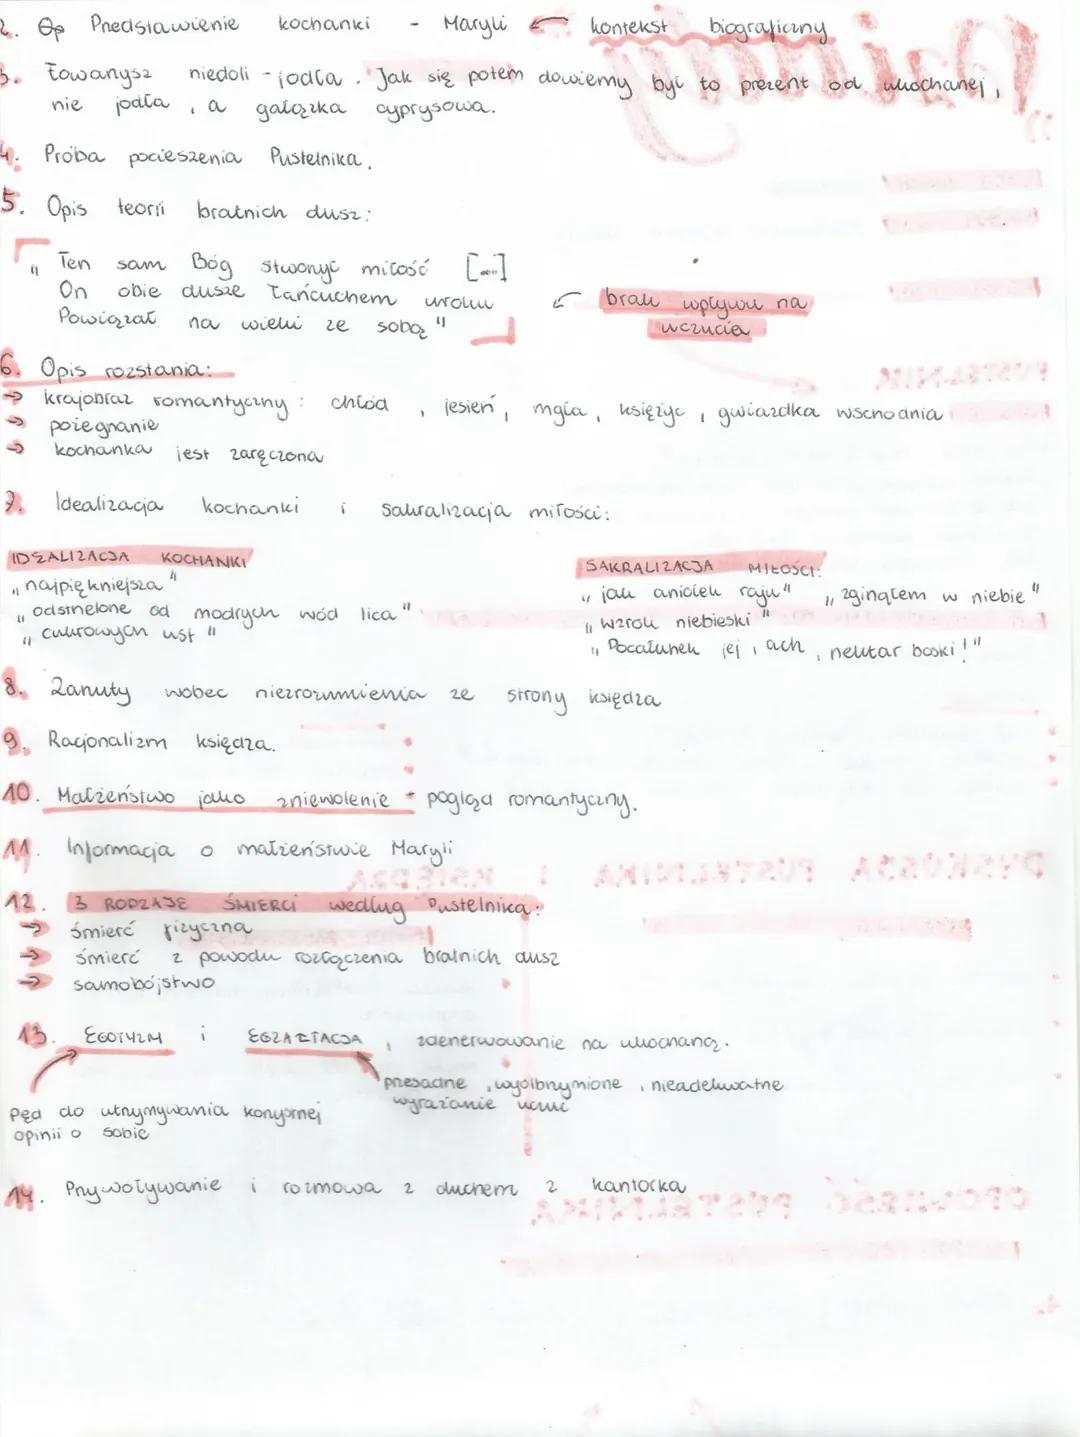 2. Przedstawienie kochanki - Maryli ← kontekst biograficzny
3. Towarzysz niedoli - jodła. Jak się potem dowiemy był to prezent od ukochanej,
nie jodła, a gałązka cyprysowa.
4. Próba pocieszenia Pustelnika.
5. Opis teorii bratnich dusz:
"Ten sam Bóg stworzył miłość [...]
On obie dusze łańcuchem uroku
Powiązał na wieki ze sobą"
← brak wpływu na
uczucia
6. Opis rozstania:
→ krajobraz romantyczny: chłód, jesień, mgła, księżyc, gwiazdka wschodnia
→ pożegnanie
→ kochanka jest zaręczona
7. Idealizacja kochanki i sakralizacja miłości:
IDEALIZACJA KOCHANKI
"najpiękniejsza"
"odstrzelone od modrych wód lica"
"cukrowych ust"
SAKRALIZACJA MIŁOŚCI:
"jak aniołek raju" "zginąłem w niebie"
"wzrok niebieski"
"Pocałunek jej, ach, nektar boski!"
8. Zarzuty wobec niezrozumienia ze strony księdza
9. Racjonalizm księdza.
10. Małżeństwo jako zniewolenie - pogląd romantyczny.
11. Informacja o małżeństwie Maryli
12. 3 RODZAJE ŚMIERCI według Pustelnika:
→ śmierć fizyczna
→ śmierć z powodu rozłączenia bratnich dusz
→ samobójstwo
13. EGOTYZM i EGZALTACJA, zdenerwowanie na ukochaną.
przesadne, wyolbrzymione, nieadekwatne
wyrażanie uczuć
Pęd do utrzymywania korzystnej
opinii o sobie
14. Przywoływanie i rozmowa z duchem z kantorka